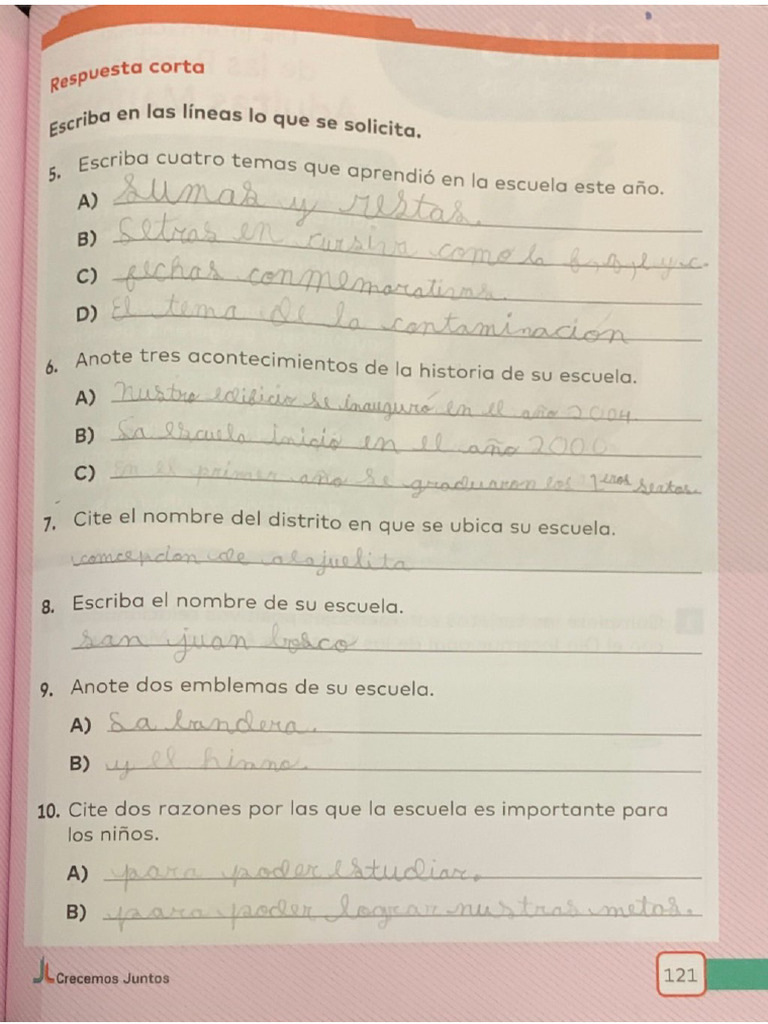 Respuesta corta
Escriba en las líneas lo que se solicita.
5. Escriba cuatro temas que aprendió en la escuela este año.
A) Sumas y restas.
B) Letras en cursiva como la f, b, l y c.
C) fechas conmemorativas.
D) El tema de la contaminación
6. Anote tres acontecimientos de la historia de su escuela.
A) Nustro edificio se inauguró en el año 2004.
B) La escuela inició en el año 2000
C) En el primer año se graduaron los 1eros sextos.
7. Cite el nombre del distrito en que se ubica su escuela.
comcepcion de alajuelita
8. Escriba el nombre de su escuela.
san juan bosco
9. Anote dos emblemas de su escuela.
A) La bandera.
B) y el himno.
10. Cite dos razones por las que la escuela es importante para
los niños.
A) para poder estudiar.
B) para poder lograr nustras metas.
Crecemos Juntos
121